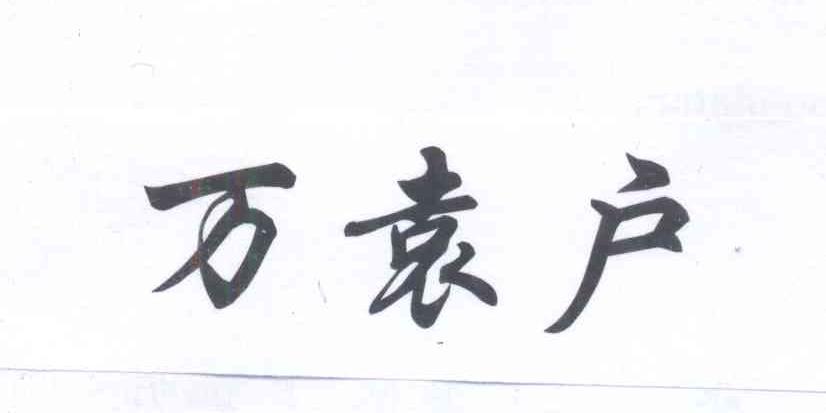 万袁户